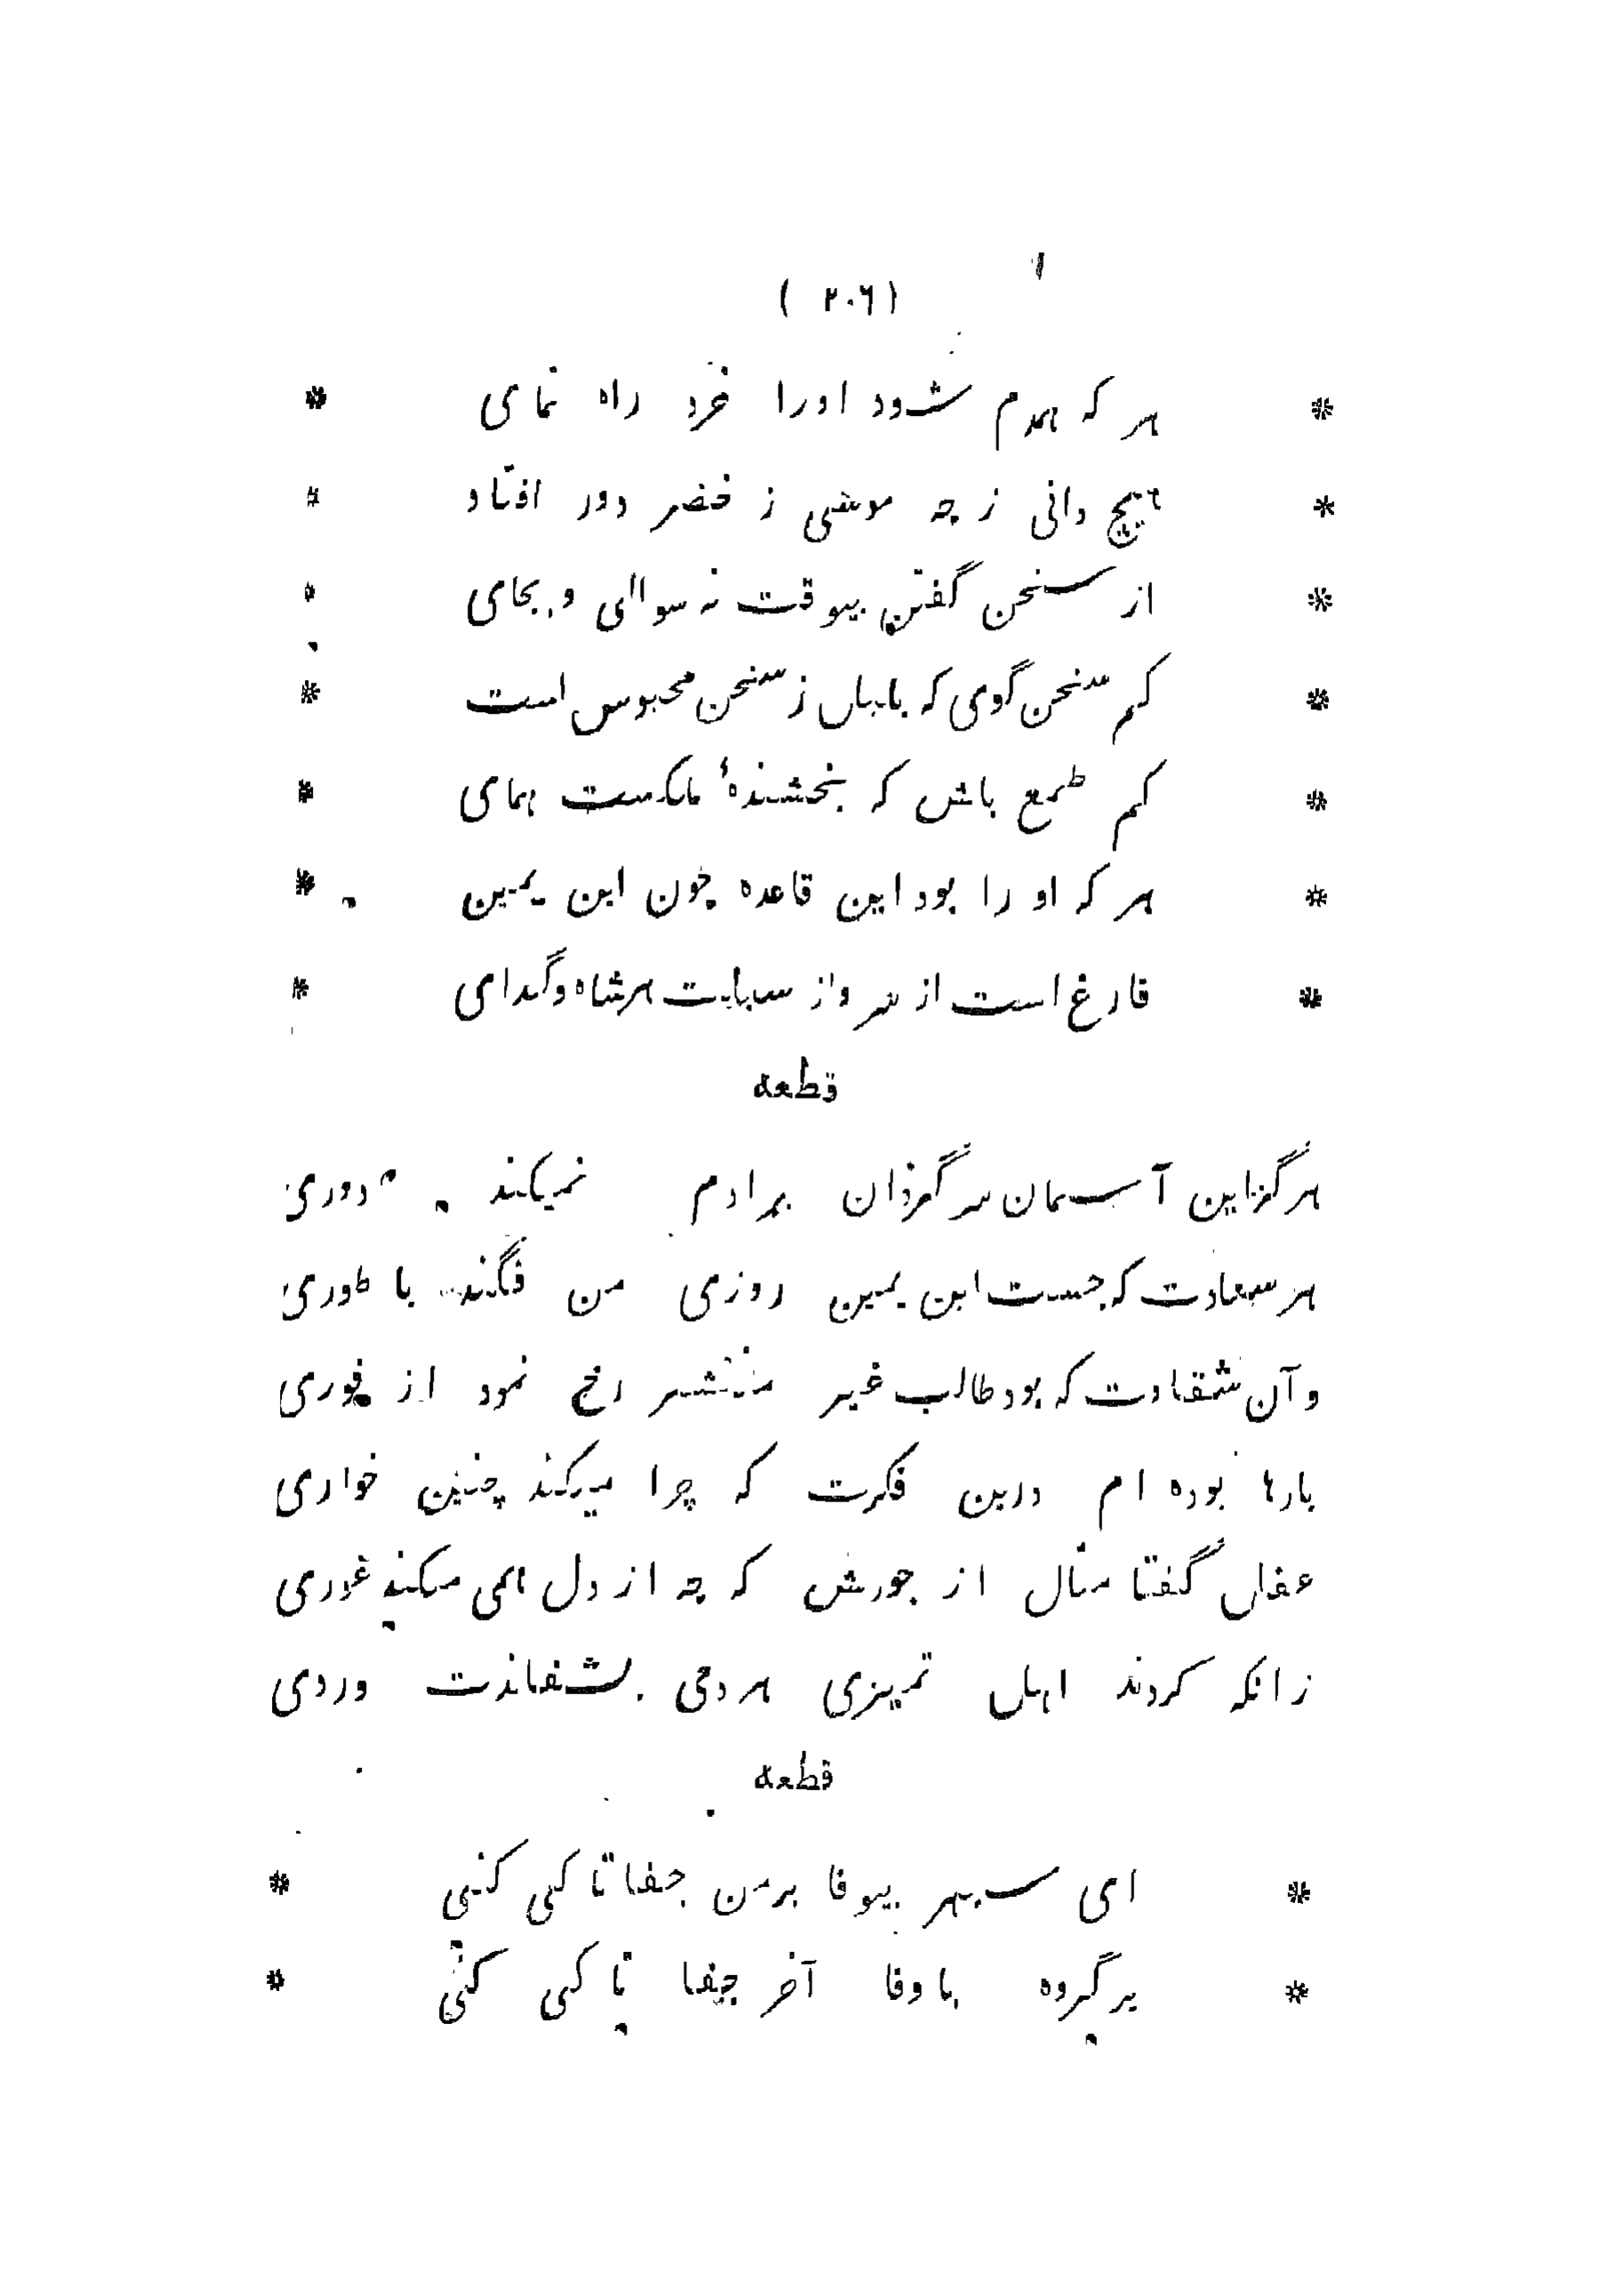 ( ٢٠٦ )
* هر که همدم شود اورا خرد راه نمای *
* هیچ دانی ز چه موسی ز خضر دور افتاد *
* از سخن گفتن بیوقت نه سوالی و بجای *
* کم سخن گوی که بلبل ز سخن محبوس است *
* کم طمع باش که بخشندهٔ ملکست همای *
* هر که او را بود این قاعده چون ابن یمین *
* فارغ است از سر و از سبلت هر شاه و گدای *
قطعه
هرگز این آسمان سرگردان بمرادم نمیکند دوری
هر سعادت که جست ابن یمین روزی من فگند با طوری
و آن شقاوت که بود طالب غیر منتشر رخ نمود از فوری
بارها بوده ام درین فکرت که چرا میکند چنین خواری
عقل گفتا منال از جورش که چه از دل همی مکند غوری
زانکه کردند اهل تمیزی هر دمی وردی
قطعه
* ای سپهر بیوفا بر من جفا تا کی کنی *
* بر گروه با وفا آخر جفا تا کی کنی *